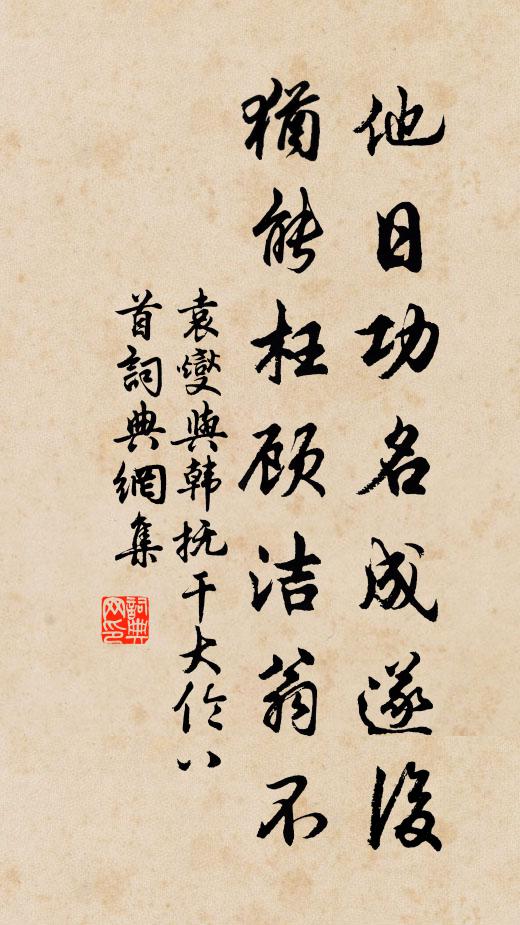 他日功名成遂後
猶能枉顾洁翁不
袁燮與韩抚干大伦八
首詞典網集
詞典网印